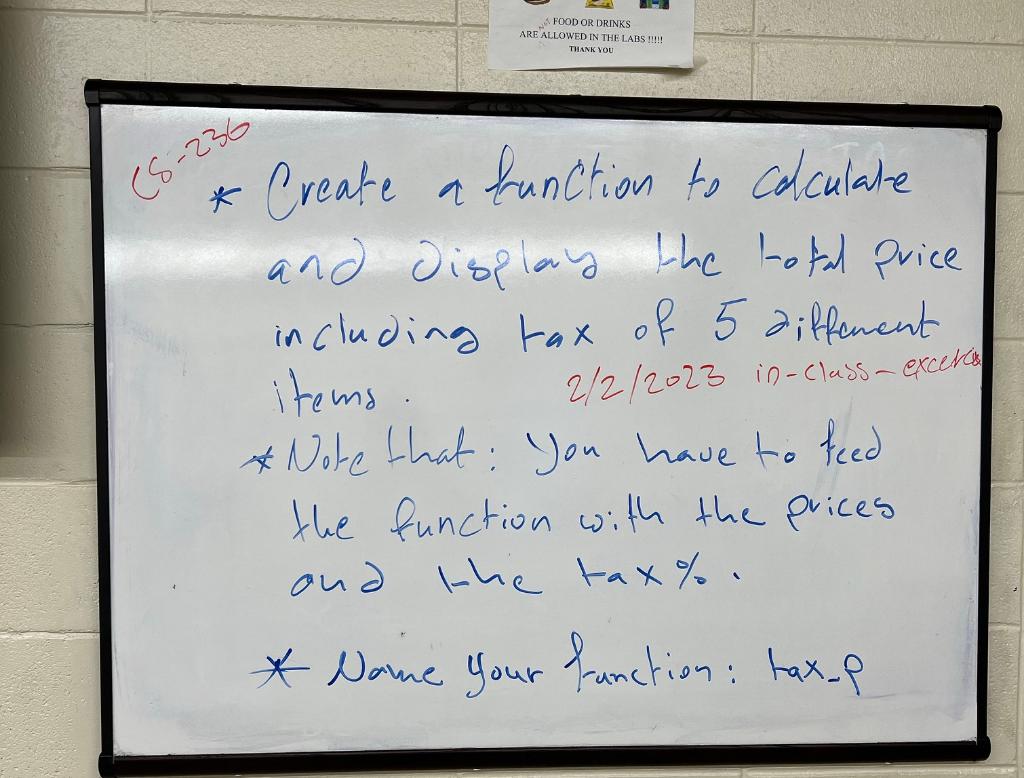 NOT
FOOD OR DRINKS
ARE ALLOWED IN THE LABS !!!!!
THANK YOU
CS-236
* Create a function to calculate
and display the total price
including tax of 5 different
items.
2/2/2023 in-class-excercis
* Note that: You have to feed
the function with the prices
and the tax%.
* Name your function: tax_p